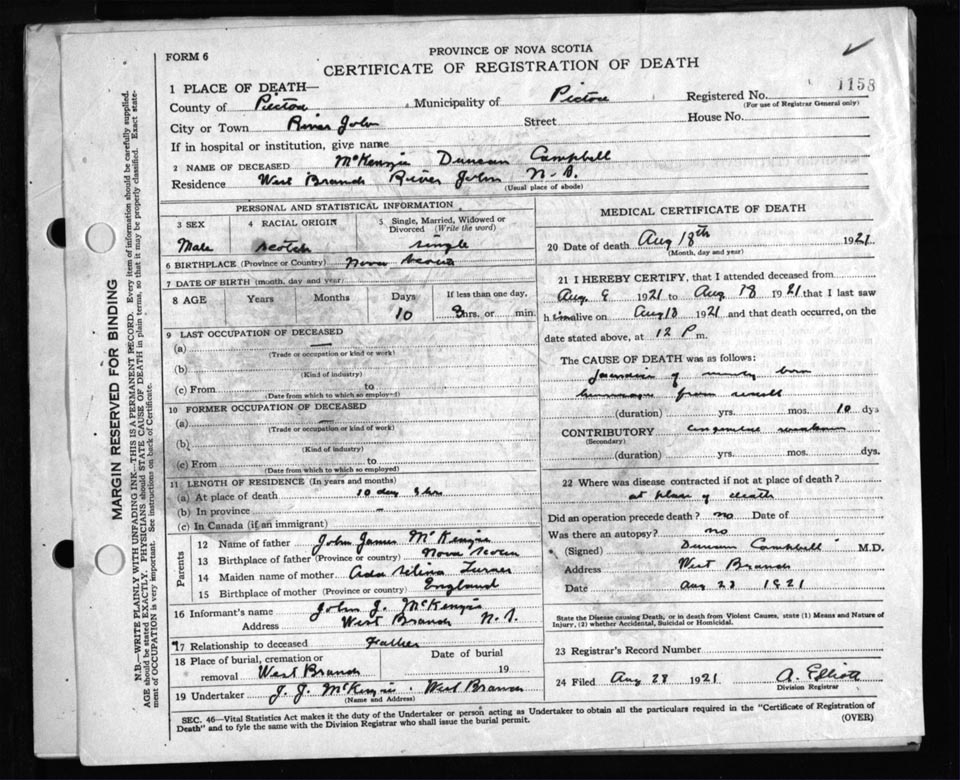 PROVINCE OF NOVA SCOTIA
FORM 6
CERTIFICATE OF REGISTRATION OF DEATH
1158
1 PLACE OF DEATH—
County of Pictou Municipality of Pictou Registered No.
(For use of Registrar General only)
City or Town River John Street House No.
If in hospital or institution, give name
2 NAME OF DECEASED McKenzie Duncan Campbell
Residence West Branch River John N.S.
(Usual place of abode)
PERSONAL AND STATISTICAL INFORMATION
3 SEX 4 RACIAL ORIGIN 5 Single, Married, Widowed or Divorced (Write the word)
Male Scotch single
6 BIRTHPLACE (Province or Country) Nova Scotia
7 DATE OF BIRTH (month, day and year)
8 AGE Years Months Days If less than one day,
10 8 hrs. or min.
9 LAST OCCUPATION OF DECEASED
(a) —
(Trade or occupation or kind of work)
(b)
(Kind of industry)
(c) From to
(Date from which to which so employed)
10 FORMER OCCUPATION OF DECEASED
(a) —
(Trade or occupation or kind of work)
(b)
(Kind of industry)
(c) From to
(Date from which to which so employed)
11 LENGTH OF RESIDENCE (In years and months)
(a) At place of death 10 day 8 hrs
(b) In province "
(c) In Canada (if an immigrant)
Parents
12 Name of father John James McKenzie
13 Birthplace of father (Province or country) Nova Scotia
14 Maiden name of mother Ada Turner
15 Birthplace of mother (Province or country) England
16 Informant's name John J. McKenzie
Address West Branch N.S.
17 Relationship to deceased Father
18 Place of burial, cremation or removal West Branch Date of burial 19
19 Undertaker J. J. McKenzie West Branch
(Name and Address)
MEDICAL CERTIFICATE OF DEATH
20 Date of death Aug 18th 1921
(Month, day and year)
21 I HEREBY CERTIFY, that I attended deceased from
Aug 1921 to Aug 18 1921 that I last saw
h im alive on Aug 18 1921 and that death occurred, on the
date stated above, at 12 P m.
The CAUSE OF DEATH was as follows:
Jaundice of newly born
from
(duration) yrs. mos. 10 dys
CONTRIBUTORY
(Secondary)
(duration) yrs. mos. dys.
22 Where was disease contracted if not at place of death?
at place of death
Did an operation precede death? no Date of
Was there an autopsy? no
(Signed) Duncan Campbell M.D.
Address West Branch
Date Aug 23 1921
State the Disease causing Death, or in death from Violent Causes, state (1) Means and Nature of
Injury, (2) whether Accidental, Suicidal or Homicidal.
23 Registrar's Record Number
24 Filed Aug 28 1921 A. Elliott
Division Registrar
SEC. 46—Vital Statistics Act makes it the duty of the Undertaker or person acting as Undertaker to obtain all the particulars required in the "Certificate of Registration of
Death" and to fyle the same with the Division Registrar who shall issue the burial permit.
(OVER)
MARGIN RESERVED FOR BINDING
N.B.—WRITE PLAINLY WITH UNFADING INK—THIS IS A PERMANENT RECORD. Every item of information should be carefully supplied.
AGE should be stated EXACTLY. PHYSICIANS should STATE CAUSE OF DEATH in plain terms, so that it may be properly classified. Exact state-
ment of OCCUPATION is very important. See instructions on back of Certificate.